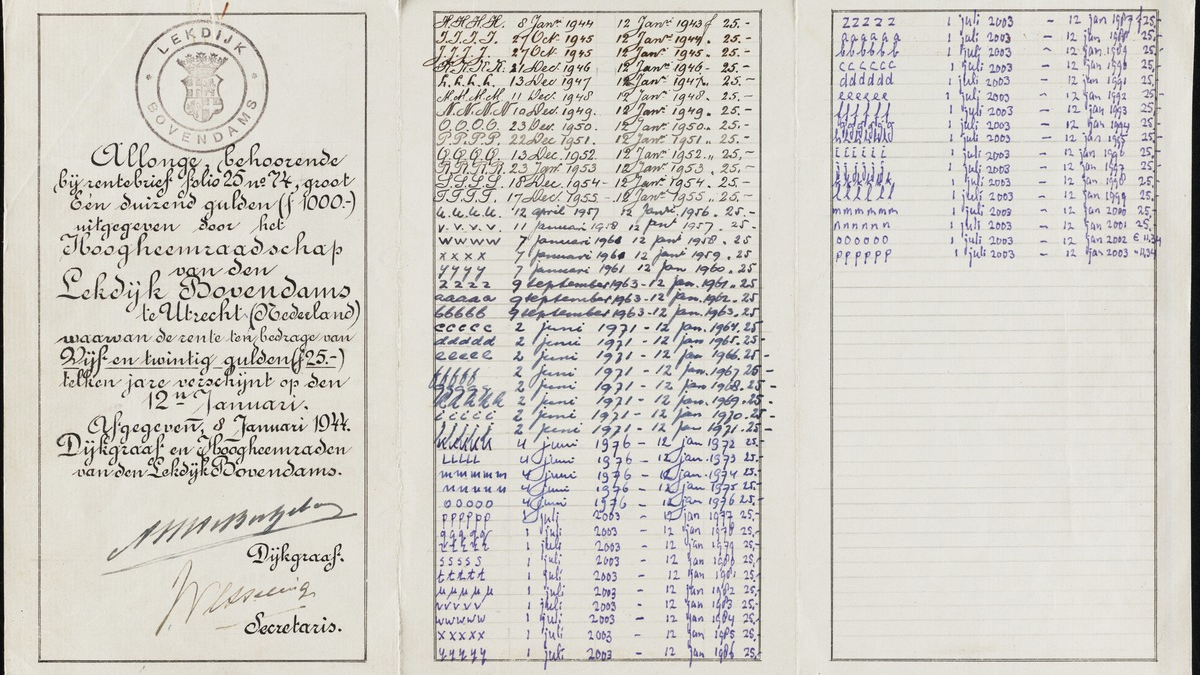 LEKDIJK
BOVENDAMS
Allonge, behoorende
bij rentebrief folio 25 no 74, groot
Één duizend gulden (ƒ 1000.-)
uitgegeven door het
Hoogheemraadschap
van den
Lekdijk Bovendams
te Utrecht (Nederland)
waarvan de rente ten bedrage van
Vijf en twintig gulden (ƒ 25.-)
telken jare verschijnt op den
12n Januari.
Afgegeven, 8 Januari 1944.
Dijkgraaf en Hoogheemraden
van den Lekdijk Bovendams.
Dijkgraaf.
Secretaris.
H.H.H.H. 8 Janr 1944 12 Janr 1943 ƒ 25.-
I.I.I.I. 27 Oct. 1945 12 Janr 1944 . 25.-
J.J.J.J. 27 Oct. 1945 12 Janr 1945 . 25.-
K.K.K.K. 21 Dec. 1946 12 Janr 1946 - 25.-
L.L.L.L. 13 Dec. 1947 12 Janr 1947 . 25.-
M.M.M.M. 11 Dec. 1948 12 Janr 1948 . 25.-
N.N.N.N. 10 Dec. 1949. 12 Janr 1949 . 25.-
O.O.O.O. 23 Dec. 1950. 12 Janr 1950 . 25.-
P.P.P.P. 22 Dec. 1951. 12 Janr 1951 „ 25.-
Q.Q.Q.Q. 13 Dec. 1952. 12 Janr 1952 „ 25.-
R.R.R.R. 23 Jan. 1953 12 Janr 1953 . 25.-
S.S.S.S. 18 Dec. 1954 - 12 Janr 1954 . 25.-
T.T.T.T. 17 Dec. 1955 - 12 Janr 1955 „ 25.-
u.u.u.u. 12 april 1957 12 Janr 1956 . 25.-
v.v.v.v. 11 januari 1958 12 janr 1957 . 25.-
wwww 7 januari 1960 12 janr 1958 . 25
xxxx 7 januari 1960 12 janr 1959 . 25
yyyy 7 januari 1961 12 jan 1960 . 25
zzzz 9 september 1963 - 12 jan. 1961 . 25
aaaaa 9 september 1963 - 12 jan. 1962 . 25
bbbbb 9 september 1963 - 12 jan. 1963 . 25
ccccc 2 juni 1971 - 12 jan. 1964 . 25
ddddd 2 juni 1971 - 12 jan. 1965 . 25
eeeee 2 juni 1971 - 12 jan. 1966 . 25
fffff 2 juni 1971 - 12 jan. 1967 25 -
ggggg 2 juni 1971 - 12 jan. 1968 . 25 -
hhhhh 2 juni 1971 - 12 jan. 1969 . 25 -
iiiii 2 juni 1971 - 12 jan 1970 . 25 -
2 juni 1971 - 12 jan 1971 . 25 -
kkkkk 4 juni 1976 - 12 jan 1972 25 -
LLLLL 4 juni 1976 - 12 jan 1973 25 -
mmmmm 4 juni 1976 - 12 jan 1974 25 -
nnnnn 4 juni 1976 - 12 jan 1975 25 -
ooooo 4 juni 1976 - 12 jan 1976 25 -
ppppp 1 juli 2003 - 12 jan 1977 25,-
qqqqq 1 juli 2003 - 12 jan 1978 25,-
rrrrr 1 juli 2003 - 12 jan 1979 25,-
sssss 1 juli 2003 - 12 jan 1980 25,-
ttttt 1 juli 2003 - 12 jan 1981 25,-
uuuuu 1 juli 2003 - 12 jan 1982 25,-
vvvvv 1 juli 2003 - 12 jan 1983 25,-
wwwww 1 juli 2003 - 12 jan 1984 25,-
xxxxx 1 juli 2003 - 12 jan 1985 25,-
yyyyy 1 juli 2003 - 12 jan 1986 25,-
zzzzz 1 juli 2003 - 12 jan 1987 ƒ 25,-
aaaaaa 1 juli 2003 - 12 jan 1988 25,-
bbbbbb 1 juli 2003 - 12 jan 1989 25,-
cccccc 1 juli 2003 - 12 jan 1990 25,-
dddddd 1 juli 2003 - 12 jan 1991 25,-
eeeeee 1 juli 2003 - 12 jan 1992 25,-
ffffff 1 juli 2003 - 12 jan 1993 25,-
gggggg 1 juli 2003 - 12 jan 1994 25,-
hhhhhh 1 juli 2003 - 12 jan 1995 25,-
iiiiii 1 juli 2003 - 12 jan 1996 25,-
jjjjjj 1 juli 2003 - 12 jan 1997 25,-
kkkkkk 1 juli 2003 - 12 jan 1998 25,-
llllll 1 juli 2003 - 12 jan 1999 25,-
mmmmmm 1 juli 2003 - 12 jan 2000 25,-
nnnnnn 1 juli 2003 - 12 jan 2001 25,-
oooooo 1 juli 2003 - 12 jan 2002 € 11,34
pppppp 1 juli 2003 - 12 jan 2003 - 11,34